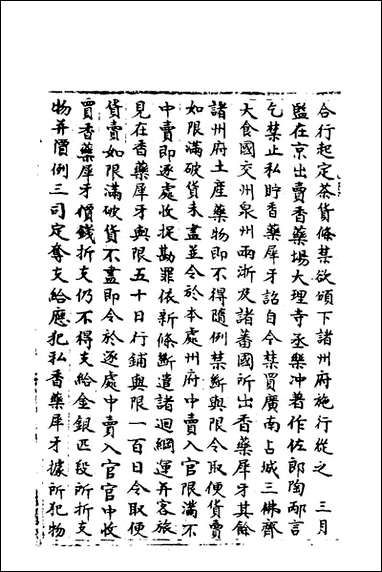 合行起定茶貨條禁欲頒下諸州府施行從之　三月
監在京出賣香藥場大理寺丞樂沖著作佐郎陶邴言
乞禁止私貯香藥犀牙詔自今禁買廣南占城三佛齊
大食國交州泉州兩浙及諸蕃國所出香藥犀牙其餘
諸州府土產藥物即不得隨例禁斷與限令取便貨賣
如限滿破貨未盡並令於本處州府中賣入官限滿不
中賣即逐處收捉勘罪依新條斷遣諸迴綱運并客旅
見在香藥犀牙與限五十日行鋪與限一百日令取便
貨賣如限滿破貨不盡即令於逐處中賣入官官中收
買香藥犀牙價錢折支仍不得支給金銀匹段所折支
物并價例三司定奪支給應犯私香藥犀牙據所犯物